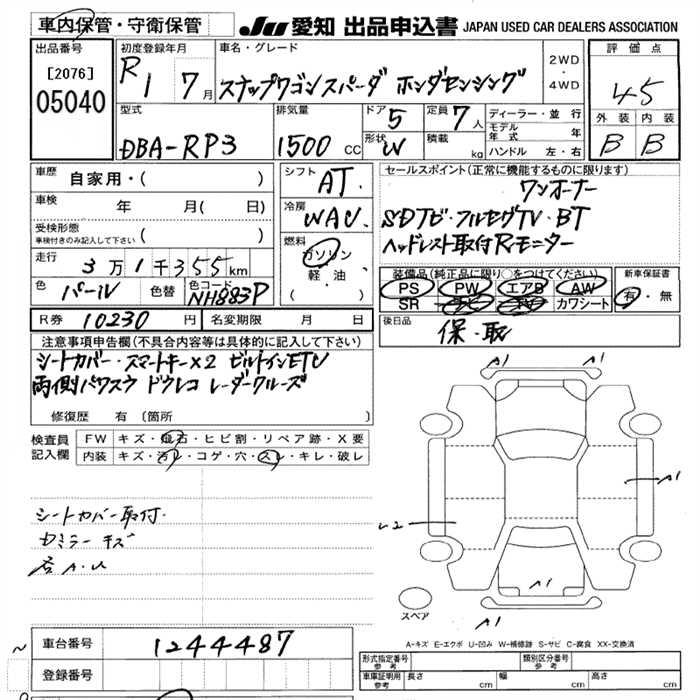 車内保管・守衛保管
JU 愛知 出品申込書 JAPAN USED CAR DEALERS ASSOCIATION
出品番号
[2076]
05040
初度登録年月
R1 7月
車名・グレード
ステップワゴンスパーダ ホンダセンシング
2WD
・
4WD
評価点
4.5
外装 内装
B B
型式
DBA-RP3
排気量
1500 CC
ドア 5
形状 W
定員 7人
積載 kg
ディーラー・並行
モデル年式 年
ハンドル 左・右
車歴 自家用・( )
車検 年 月( 日)
受検形態
車検付きのみ記入して下さい ( )
走行 3万1千355km
色 パール 色替 色コード NH883P
シフト AT
冷房 WAC
燃料
ガソリン
軽油
( )
セールスポイント(正常に機能するものに限ります)
ワンオーナー
SDナビ・フルセグTV・BT
ヘッドレスト取付Rモニター
装備品(純正品に限り○をつけてください)
PS PW エアB AW
SR ナビ TV カワシート
新車保証書
有・無
R券 10230円 名変期限 月 日
後日品 保・取
注意事項申告欄(不具合内容等は具体的に記入して下さい)
シートカバー・スマートキー×2 ビルトインETC
両側パワスラ ドラレコ レーダークルーズ
修復歴 有 〔箇所 〕
検査員記入欄
FW キズ・飛石・ヒビ割・リペア跡・X要
内装 キズ・汚レ・コゲ・穴・スレ・キレ・破レ
シートカバー取付
Dミラー キズ
A.U
A1 A1
A1
A1
A1
スペア
A-キズ E-エクボ U-凹み W-補修跡 S-サビ C-腐食 XX-交換済
車台番号 1244487
登録番号
形式指定番号 参考
類別区分番号 参考
車庫証明用 参考 長さ cm 幅 cm 高さ cm